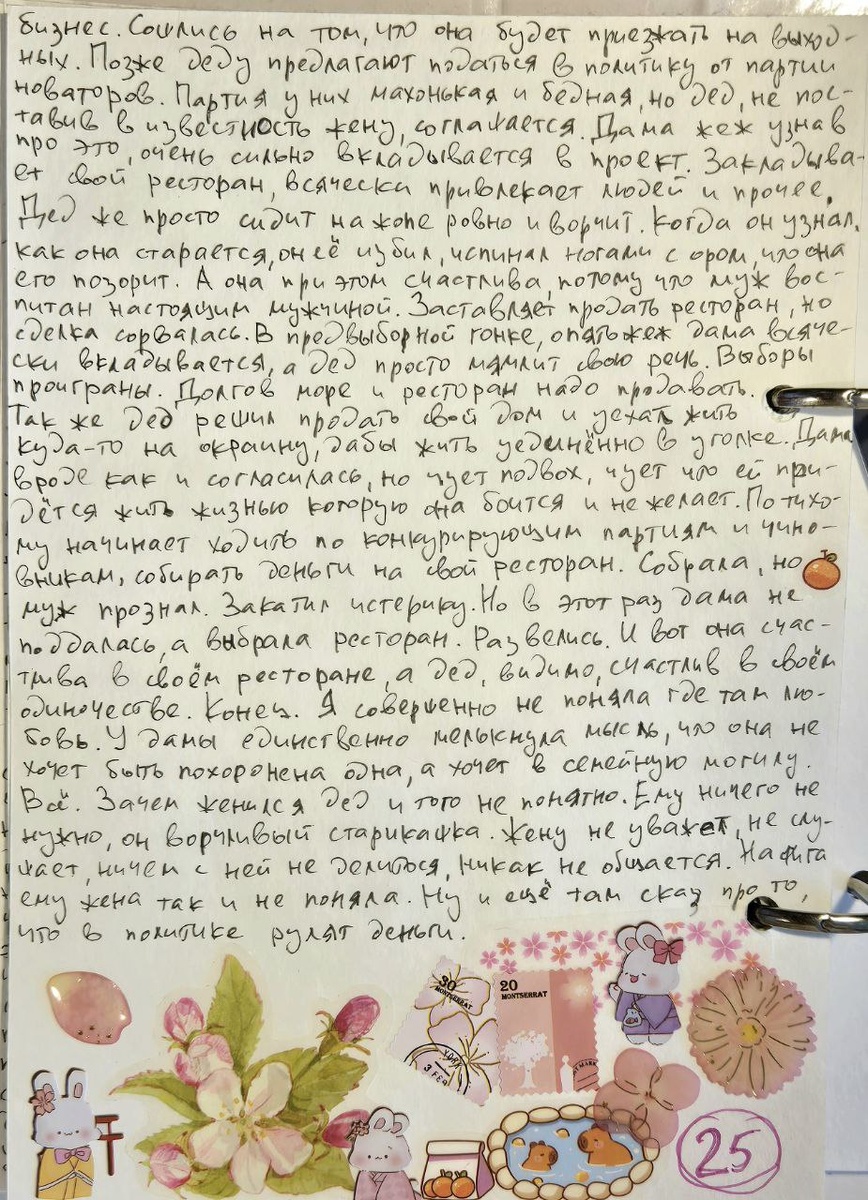 бизнес. Сошлись на том, что она будет приезжать на выход-
ных. Позже деду предлагают податься в политику от партии
новаторов. Партия у них махонькая и бедная, но дед, не пос-
тавив в известность жену, соглашается. Дама жеж узнав
про это, очень сильно вкладывается в проект. Закладыва-
ет свой ресторан, всячески привлекает людей и прочее.
Дед же просто сидит на жопе ровно и ворчит. Когда он узнал,
как она старается, он её избил, испинал ногами с ором, что она
его позорит. А она при этом счастлива, потому что муж вос-
питан настоящим мужчиной. Заставляет продать ресторан, но
сделка сорвалась. В предвыборной гонке, опять жеж дама всяче-
ски вкладывается, а дед просто мямлит свою речь. Выборы
проиграны. Долгов море и ресторан надо продавать.
Так же дед решил продать свой дом и уехать жить
куда-то на окраину, дабы жить уединённо в уголке. Дама
вроде как и согласилась, но чует подвох, чует что ей при-
дётся жить жизнью которую она боится и не желает. По тихо-
му начинает ходить по конкурирующим партиям и чино-
вникам, собирать деньги на свой ресторан. Собрала, но
муж прознал. Закатил истерику. Но в этот раз дама не
поддалась, а выбрала ресторан. Развелись. И вот она счас-
тлива в своём ресторане, а дед, видимо, счастлив в своём
одиночестве. Конец. Я совершенно не поняла где там лю-
бовь. У дамы единственно мелькнула мысль, что она не
хочет быть похоронена одна, а хочет в семейную могилу.
Всё. Зачем женился дед и того не понятно. Ему ничего не
нужно, он ворчливый старикашка. Жену не уважает, не слу-
шает, ничем с ней не делиться, никак не общается. Нафига
ему жена так и не поняла. Ну и ещё там сказ про то,
что в политике рулят деньги.
30
MONTSERRAT
20
MONTSERRAT
YORK
3 FEB
25